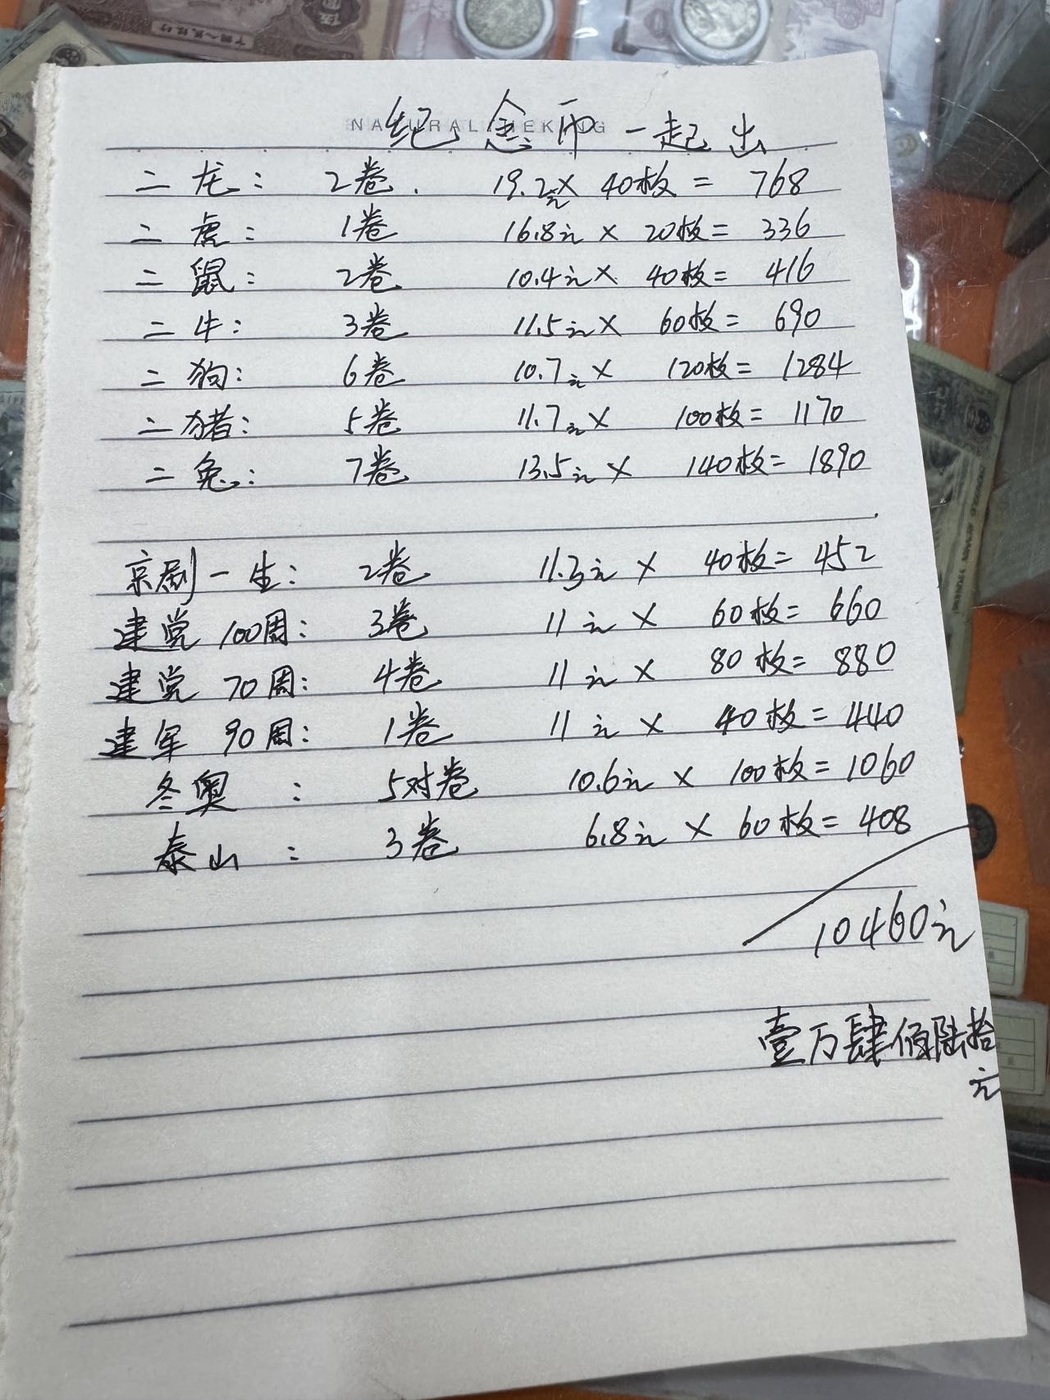 纪念币一起出
二龙： 2卷. 19.2元× 40枚= 768
二虎： 1卷 16.8元× 20枚= 336
二鼠： 2卷 10.4元× 40枚= 416
二牛： 3卷 11.5元× 60枚= 690
二狗： 6卷 10.7元× 120枚= 1284
二猪： 5卷 11.7元× 100枚= 1170
二兔： 7卷 13.5元× 140枚= 1890
京剧一生： 2卷 11.3元× 40枚= 452
建党100周： 3卷 11元× 60枚= 660
建党70周： 4卷 11元× 80枚= 880
建军90周： 1卷 11元× 40枚= 440
冬奥： 5对卷 10.6元× 100枚= 1060
泰山： 3卷 6.8元× 60枚= 408
10460元
壹万肆佰陆拾
元